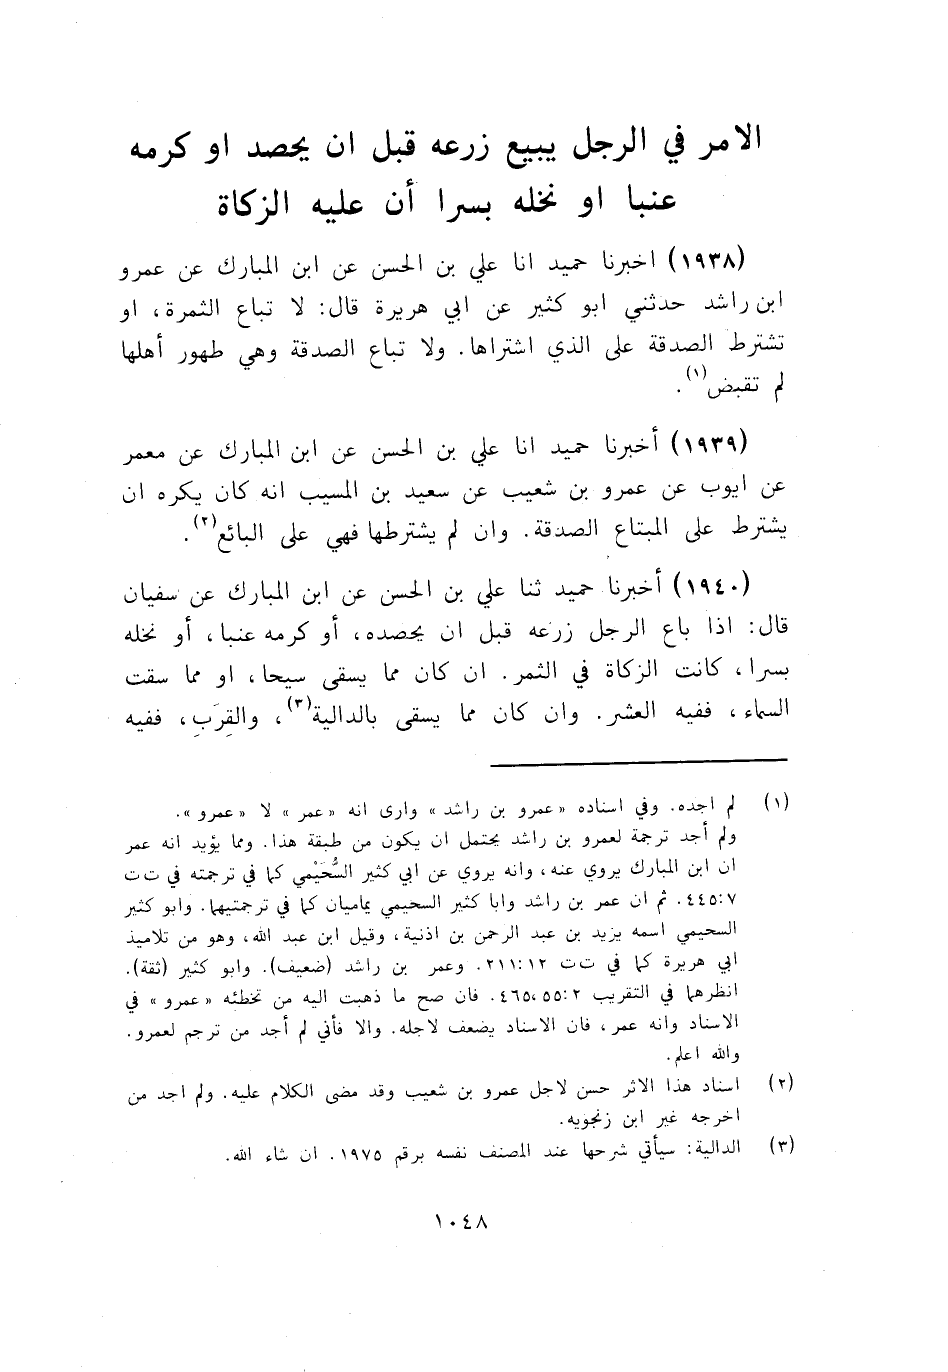 الامر في الرجل يبيع زرعه قبل ان يحصد او كرمه
عنبا او نخله بسرا أن عليه الزكاة
(١٩٣٨) اخبرنا حميد انا علي بن الحسن عن ابن المبارك عن عمرو
ابن راشد حدثني ابو كثير عن ابي هريرة قال: لا تباع الثمرة، او
تشترط الصدقة على الذي اشتراها. ولا تباع الصدقة وهي طهور أهلها
لم تقبض(١).
(١٩٣٩) أخبرنا حميد انا علي بن الحسن عن ابن المبارك عن معمر
عن ايوب عن عمرو بن شعيب عن سعيد بن المسيب انه كان يكره ان
يشترط على المبتاع الصدقة. وان لم يشترطها فهي على البائع(٢).
(١٩٤٠) أخبرنا حميد ثنا علي بن الحسن عن ابن المبارك عن سفيان
قال: اذا باع الرجل زرعه قبل ان يحصده، أو كرمه عنبا، أو نخله
بسرا، كانت الزكاة في الثمر. ان كان مما يسقى سيحا، او مما سقت
السماء، ففيه العشر. وان كان مما يسقى بالدالية(٣)، والقِرَب، ففيه
(١) لم اجده. وفي اسناده «عمرو بن راشد» وارى انه «عمر» لا «عمرو».
ولم أجد ترجمة لعمرو بن راشد يحتمل ان يكون من طبقة هذا. ومما يؤيد انه عمر
ان ابن المبارك يروي عنه، وانه يروي عن ابي كثير السُّحَيْمي كما في ترجمته في ت ت
٤٤٥:٧. ثم ان عمر بن راشد وابا كثير السحيمي يماميان كما في ترجمتيهما. وابو كثير
السحيمي اسمه يزيد بن عبد الرحمن بن اذنية، وقيل ابن عبد الله، وهو من تلاميذ
ابي هريرة كما في ت ت ٢١١:١٢. وعمر بن راشد (ضعيف). وابو كثير (ثقة).
انظرهما في التقريب ٥٥:٢، ٤٦٥. فان صح ما ذهبت اليه من تخطئه «عمرو» في
الاسناد وانه عمر، فان الاسناد يضعف لاجله. والا فأني لم أجد من ترجم لعمرو.
والله اعلم.
(٢) اسناد هذا الاثر حسن لاجل عمرو بن شعيب وقد مضى الكلام عليه. ولم اجد من
اخرجه غير ابن زنجويه.
(٣) الدالية: سيأتي شرحها عند المصنف نفسه برقم ١٩٧٥. ان شاء الله.
١٠٤٨